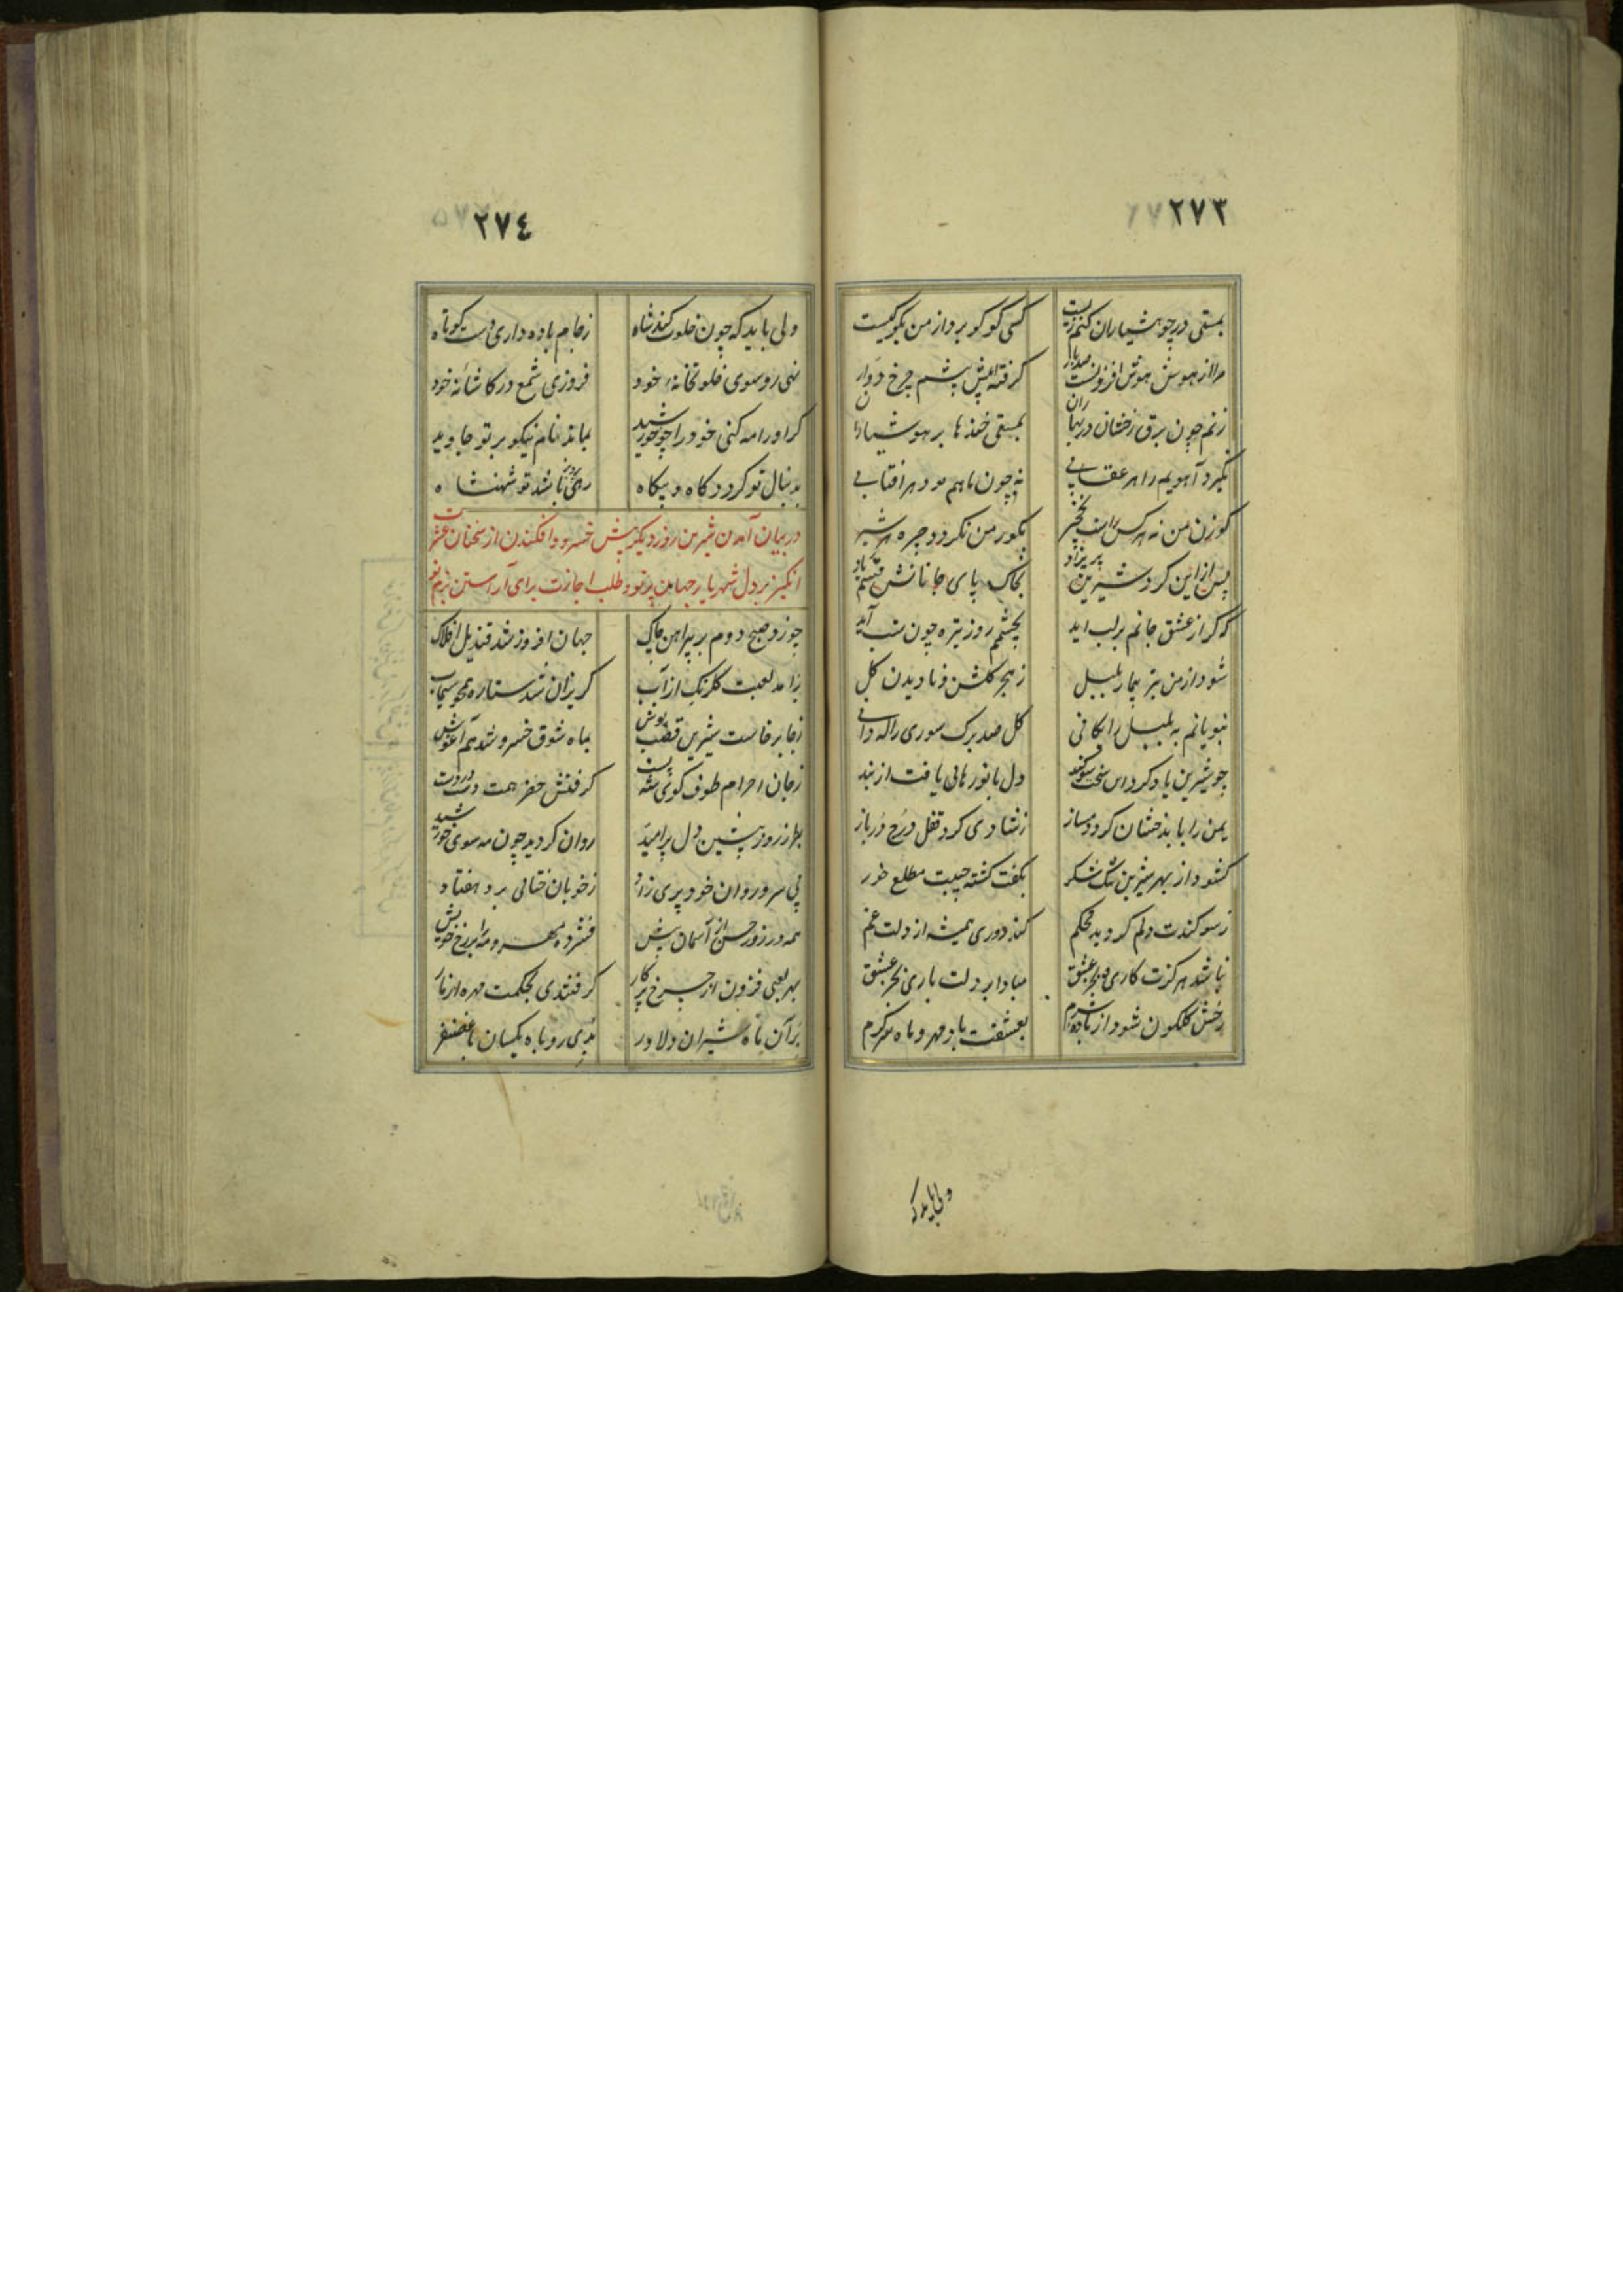 ٢٧٣
بمستی در چو هشیاران کنم زیست کسی کو کو برد از من بگو کیست
مرا از هوش هوش افزونست صد بار کرفته پیش چشم چرخ دوار
زنم چون برق رخشان در بهاران بمستی خنده ها بر هوشیاران
نگیرد آهویم را هر عقابی نه چون ماهم بود هر افتابی
کوزن من نه هر کس راست نخچیر بکور من نکردد چیره هر شیر
پس از این کرد شیرین پریزاد بخاک پای جانانش قسم یاد
که کر از عشق جانم بر لب اید بچشمم روز تیره چون شب آید
شود از من بتر بیمار بلبل ز هجر کلشن و نادیدن کل
نبویانم به بلبل رایکانی کل صد برک سوری را که دانی
چو شیرین یاد کرد این سخت سوکند دل بانو رهائی یافت از بند
یمن را با بدخشان کرد دمساز ز شادی کرد قفل درج در باز
کشود از بهر شیرین تنک شکر بگفت کشته جیبت مطلع خور
ز سوکندت دلم کردید محکم کند دوری همیشه از دلت غم
نباشد هرکزت کاری بجز عشق مبادا بر دلت باری بجز عشق
رخش کلکون شود از باده شرم بعشقت باد مهر و ماه سرکرم
ولی باید که
٢٧٤
ولی باید که چون خلوت کند شاه ز جام باده داری دست کوتاه
نهی رو سوی خلوتخانهٔ خود فروزی شمع در کاشانهٔ خود
کر او رامه کنی خود را چو خورشید بماند نام نیکو بر تو جاوید
بدنبال تو کردد کاه و بیکاه رهی باشد تو شهنشاه
در بیان آمدن شیرین روز دیکر پیش خسرو و افکندن از سخنان عشرت
انکیز بر دل شهریار جهان پرتو و طلب اجازت برای آراستن بزم نو
چو زد صبح دوم بر پیراهن چاک جهان افروز شد قندیل افلاک
برآمد لعبت کلرنک از آب کریزان شد ستاره همچو سیماب
ز جا برخاست شیرین قصب پوش بماه شوق خسرو شد هم آغوش
ز جان احرام طوف کوی شه بست کرفتش خضر همت دست در دست
بطرز روز پیشین دل پر امید روان کردید چون مه سوی خورشید
پی سرو روان خود پری زاد ز خوبان ختائی برد هفتاد
همه در زور حسن از آسمان بیش فشرده مهر و مه را بر رخ خویش
بهر لعبی فزون از چرخ پرکار کرفتندی بحکمت مهره از مار
بر آن ماه شیران دلاور بدی روباه یکسان با غضنفر